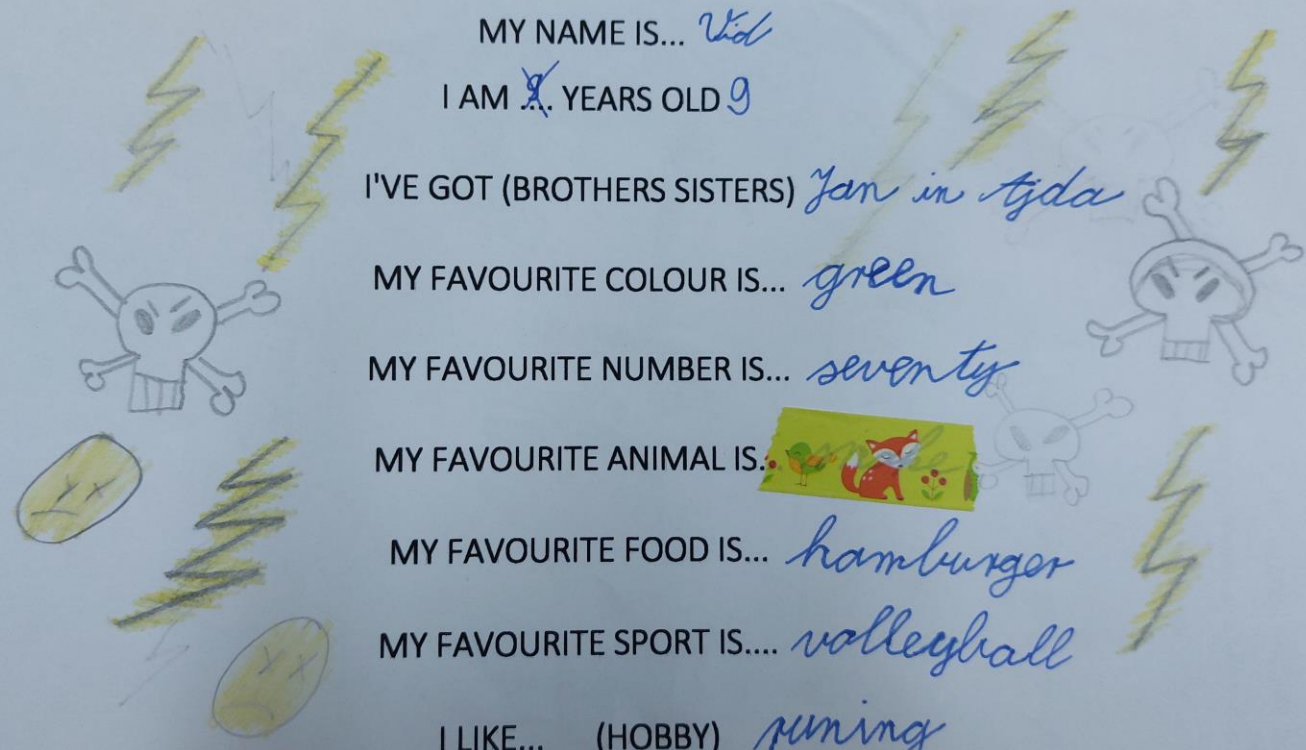 MY NAME IS... Vid
I AM .... YEARS OLD 9
I'VE GOT (BROTHERS SISTERS) Jan in Ajda
MY FAVOURITE COLOUR IS... green
MY FAVOURITE NUMBER IS... seventy
MY FAVOURITE ANIMAL IS.
MY FAVOURITE FOOD IS... hamburger
MY FAVOURITE SPORT IS.... volleyball
I LIKE... (HOBBY) runing